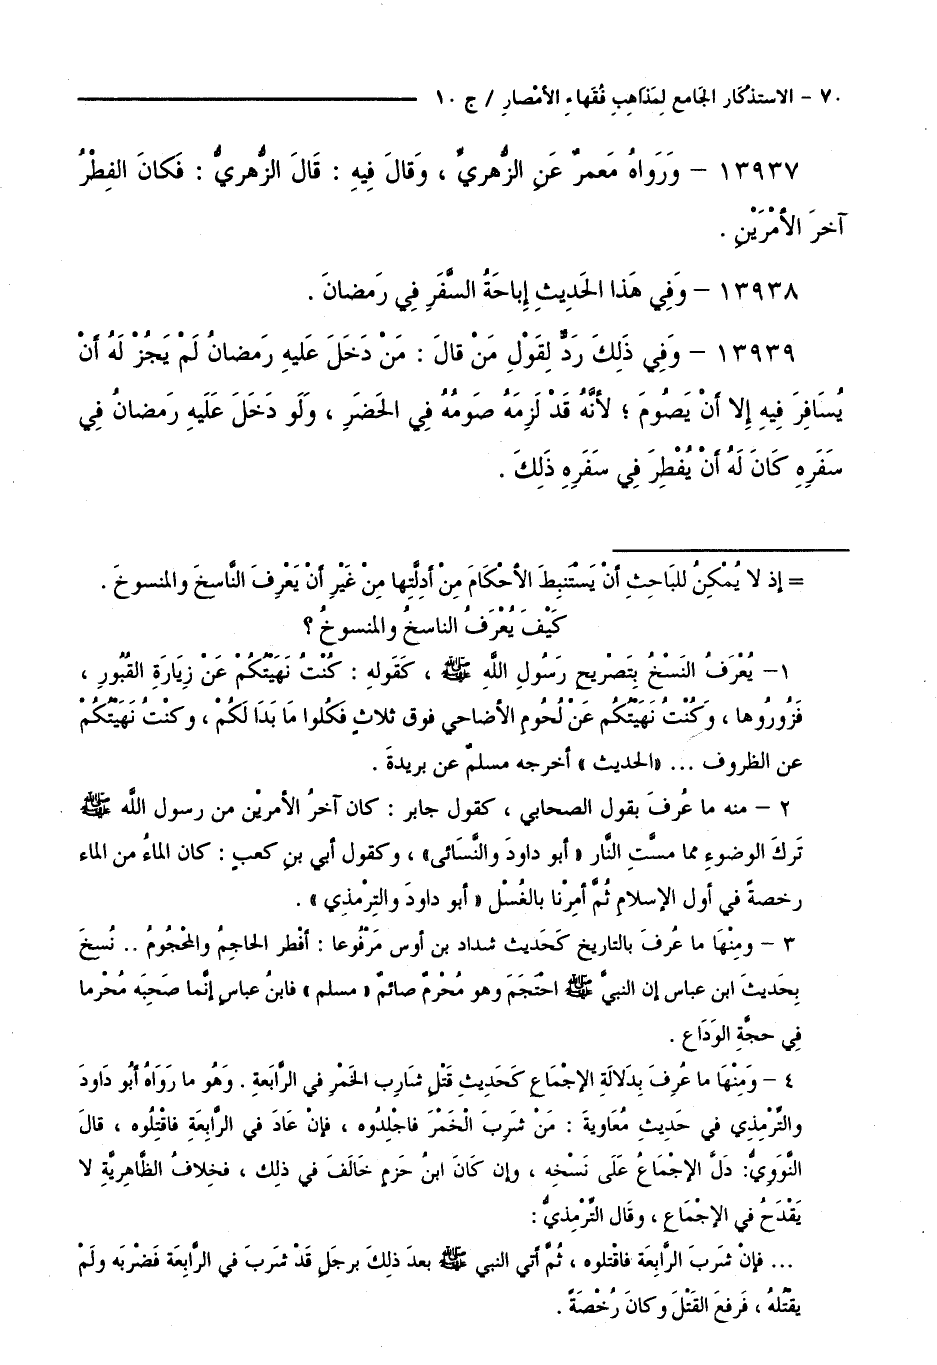 ٧٠ - الاستذكار الجامع لمَذَاهبِ فُقَهاءِ الأمْصارِ / ج ١٠
١٣٩٣٧ - وَرَوَاهُ مَعمرٌ عَنِ الزُّهريِّ ، وَقالَ فيهِ : قَالَ الزُّهريُّ : فَكانَ الفِطْرُ
آخرَ الأمْرَيْنِ .
١٣٩٣٨ - وَفِي هَذا الحَديثِ إِباحَةُ السَّفَرِ فِي رَمضانَ .
١٣٩٣٩ - وَفِي ذَلِكَ رَدٌّ لِقَوْلِ مَنْ قالَ : مَنْ دَخَلَ عَليهِ رَمضانُ لَمْ يَجُزْ لَهُ أنْ
يُسَافِرَ فيهِ إِلا أَنْ يَصُومَ ؛ لأنَّهُ قَدْ لَزِمَهُ صَومُهُ فِي الحَضَرِ ، وَلَو دَخَلَ عَلَيهِ رمَضانُ فِي
سَفَرِهِ كَانَ لَهُ أنْ يُفْطِرَ فِي سَفَرِهِ ذَلِكَ .
= إذ لا يُمْكِنُ للبَاحِثِ أنْ يَسْتَنبِطَ الأحْكَامَ مِنْ أدِلَّتِها مِنْ غَيْرِ أنْ يَعْرِفَ النَّاسِخَ والمنسوخَ .
كَيْفَ يُعْرَفُ الناسخُ والمنسوخُ ؟
١- يُعْرَفُ النَسْخُ بِتَصْرِيحِ رَسُولِ اللَّهِ ﷺ ، كَقَولهِ : كُنْتُ نَهَيْتُكُمْ عَنْ زِيَارَةِ القُبُورِ ،
فَزُورُوها ، وَكُنْتُ نَهَيْتُكُم عَنْ لحُومِ الأضاحي فوق ثلاثٍ فَكُلوا مَا بَدَا لَكُمْ ، وكنْتُ نَهَيْتُكُمْ
عن الظروف ... «الحديث» أخرجه مسلمٌ عن بريدةَ .
٢ - منه ما عُرفَ بقول الصحابي ، كقول جابر : كان آخرُ الأمريْن من رسول اللَّه ﷺ
تَركَ الوضوءِ مما مسَّتِ النَّار « أبو داودَ والنَّسَائى» ، وكقولِ أبي بنِ كعبٍ : كان الماءُ من الماء
رخصةً في أول الإسلامِ ثُمَّ أمِرْنا بالغُسْل « أبو داودَ والتِرمْذي » .
٣ - ومِنْهَا ما عُرفَ بالتاريخ كَحَديث شداد بن أوس مَرْفُوعا : أفْطر الحاجمُ والمحْجُومُ .. نُسِخَ
بِحَديثَ ابن عباس إن النبيَّ ﷺ احْتَجَمَ وهو مُحْرمٌ صائمٌ « مسلم » فابنُ عباسٍ إنَّما صَحِبَه مُحْرما
فِي حجَّةِ الوَدَاعِ .
٤ - وَمِنْهَا ما عُرِفَ بِدَلالَةِ الإجْمَاعِ كَحَديثِ قَتْلِ شارِبِ الخَمْرِ في الرَّابَعَةِ . وَهُو ما رَوَاهُ أبُو دَاودَ
والتَّرمْذِي في حَديثِ مُعَاويةَ : مَنْ شَرِبَ الْخَمْرَ فاجْلِدُوه ، فإنْ عَادَ في الرَّابعَةِ فاقْتلُوه ، قالَ
النَّوَوِيُّ: دَلَّ الإجْمَاعُ عَلَى نَسْخِه ، وإن كَانَ ابنُ حَزمٍ خَالَفَ في ذلك ، فخِلافُ الظَّاهِريَّةِ لا
يَقْدَحُ في الإجْمَاعِ ، وقَال التَّرْمِذيُّ :
... فإنْ شَربَ الرَّابعَة فاقتلوه ، ثُمَّ أتي النبي ﷺ بعدَ ذلِكَ برجلٍ قَدْ شَرَبَ في الرَّابِعَة فَضْربَه ولَمْ
يقْتُلهُ ، فَرفعَ القَتْلَ وكانَ رُخْصَةً .